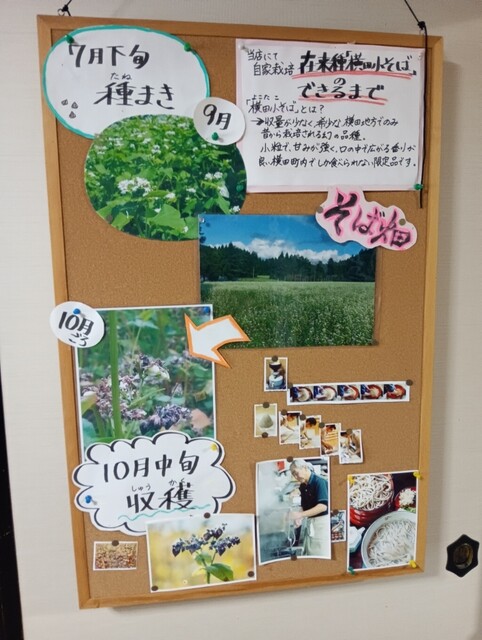 7月下旬
たね
種まき
9月
当店にて
自家栽培
在来種「横田小そば」
の
できるまで
よこたこ
「横田小そば」とは？
→収量が少なく、希少な横田地方でのみ
昔から栽培される幻の品種。
小粒で、甘みが強く、口の中で広がる香りが
良い横田町内でしか食べられない限定品です。
そば畑
10月
10月中旬
しゅう かく
収穫